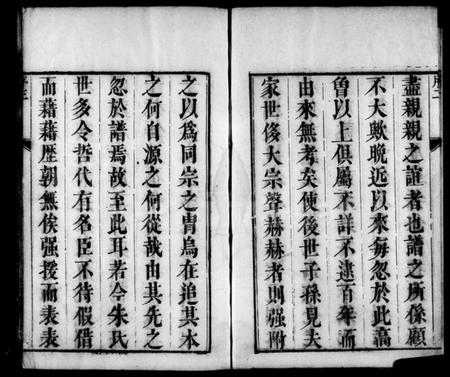 盡親親之誼者也譜之所係顧
不大歟晚近以來每忽於此高
曾以上俱屬不詳不逮百年而
由來無考矣使後世子孫見夫
家世侈大宗聲赫赫者則强附
之以爲同宗之胄烏在追其本
之何自源之何從哉由其先之
忽於譜焉故至此耳若令朱氏
世多令哲代有名臣不待假借
而藉藉歷朝無俟强援而表表